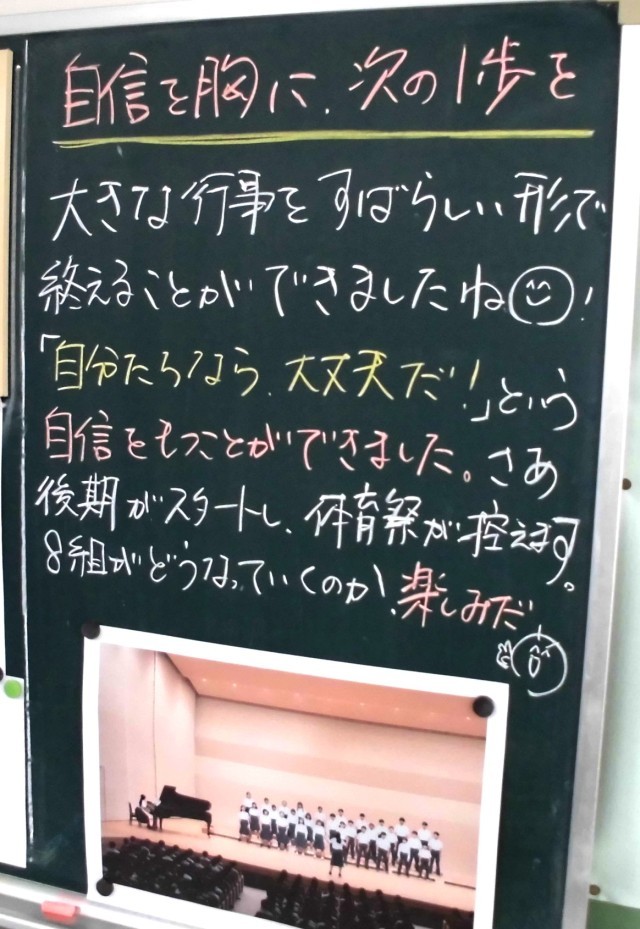 自信を胸に、次の1歩を
大きな行事をすばらしい形で
終えることができましたね!
「自分たちなら、大丈夫だ!」という
自信をもつことができました。さあ
後期がスタートし、体育祭が控えます。
8組がどうなっていくのか、楽しみだ